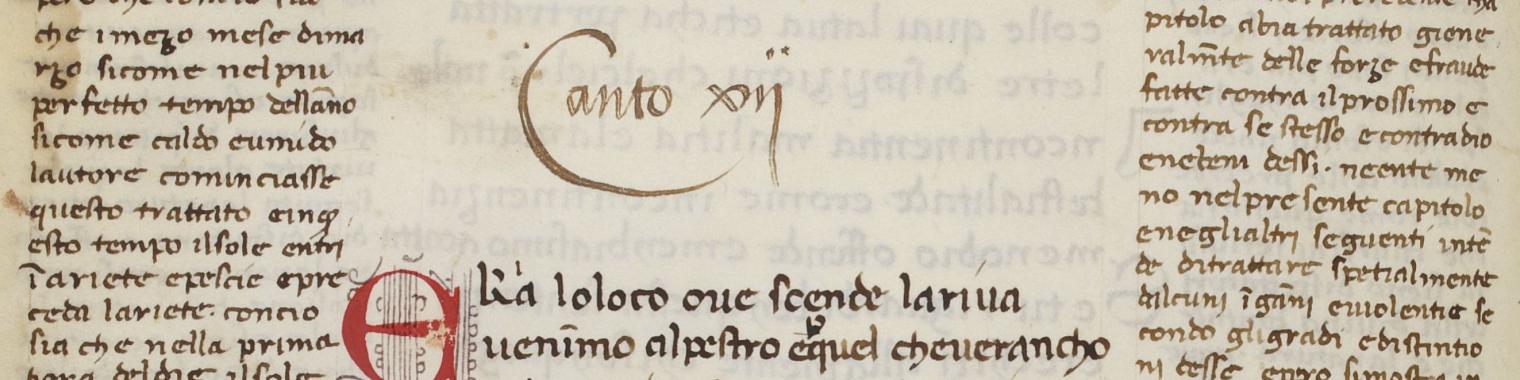 che i mezo mese dima
rzo sicome nel piu
perfetto tempo dellãno
sicome caldo eumido
lautore cominciasse
questo trattato einq
esto tempo ilsole entri
ĩariete epescie epre
ceda lariete· concio
sia che nella prima
hora deldie ilsole
Canto xii
ERA loloco oue scende lariua
uenĩmo alpestro equel cheuerancho
pitolo abia trattato giene
ralmẽte delle forze efraude
fatte contra ilprossimo e
contra se stesso econtradio
enebeni dessi· neente me
no nelpresente capitolo
eneglialtri seguenti intẽ
de ditrattare spetialmente
dalcuni ĩgãni euiolentie se
condo gligradi edistintio